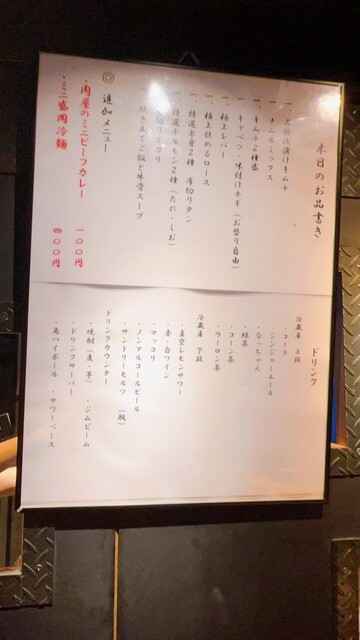 本日のお品書き
浅漬けキムチ
・ナムルミックス
・キムチ2種盛
・キャベツ・味付けネギ（お替り自由）
・極上レバー
・極上詰めるロース
・特選赤身2種 厚切りタン
・特選ホルモン2種（たれ・しお）
焼き立てご飯と牛骨スープ
◎ 追加メニュー
・肉屋のミニビーフカレー 一〇〇円
・ミニ盛岡冷麺 四〇〇円
ドリンク
冷蔵庫 上段
・コーラ
・ジンジャーエール
・なっちゃん
・緑茶
・コーン茶
・ウーロン茶
冷蔵庫 下段
・真空レモンサワー
・赤・白ワイン
・マッコリ
・ノンアルコールビール
・サントリーモルツ （瓶）
ドリンクカウンター
・焼酎（麦・芋） ・ジムビーム
・ドリンクサーバー
・角ハイボール ・サワーベース